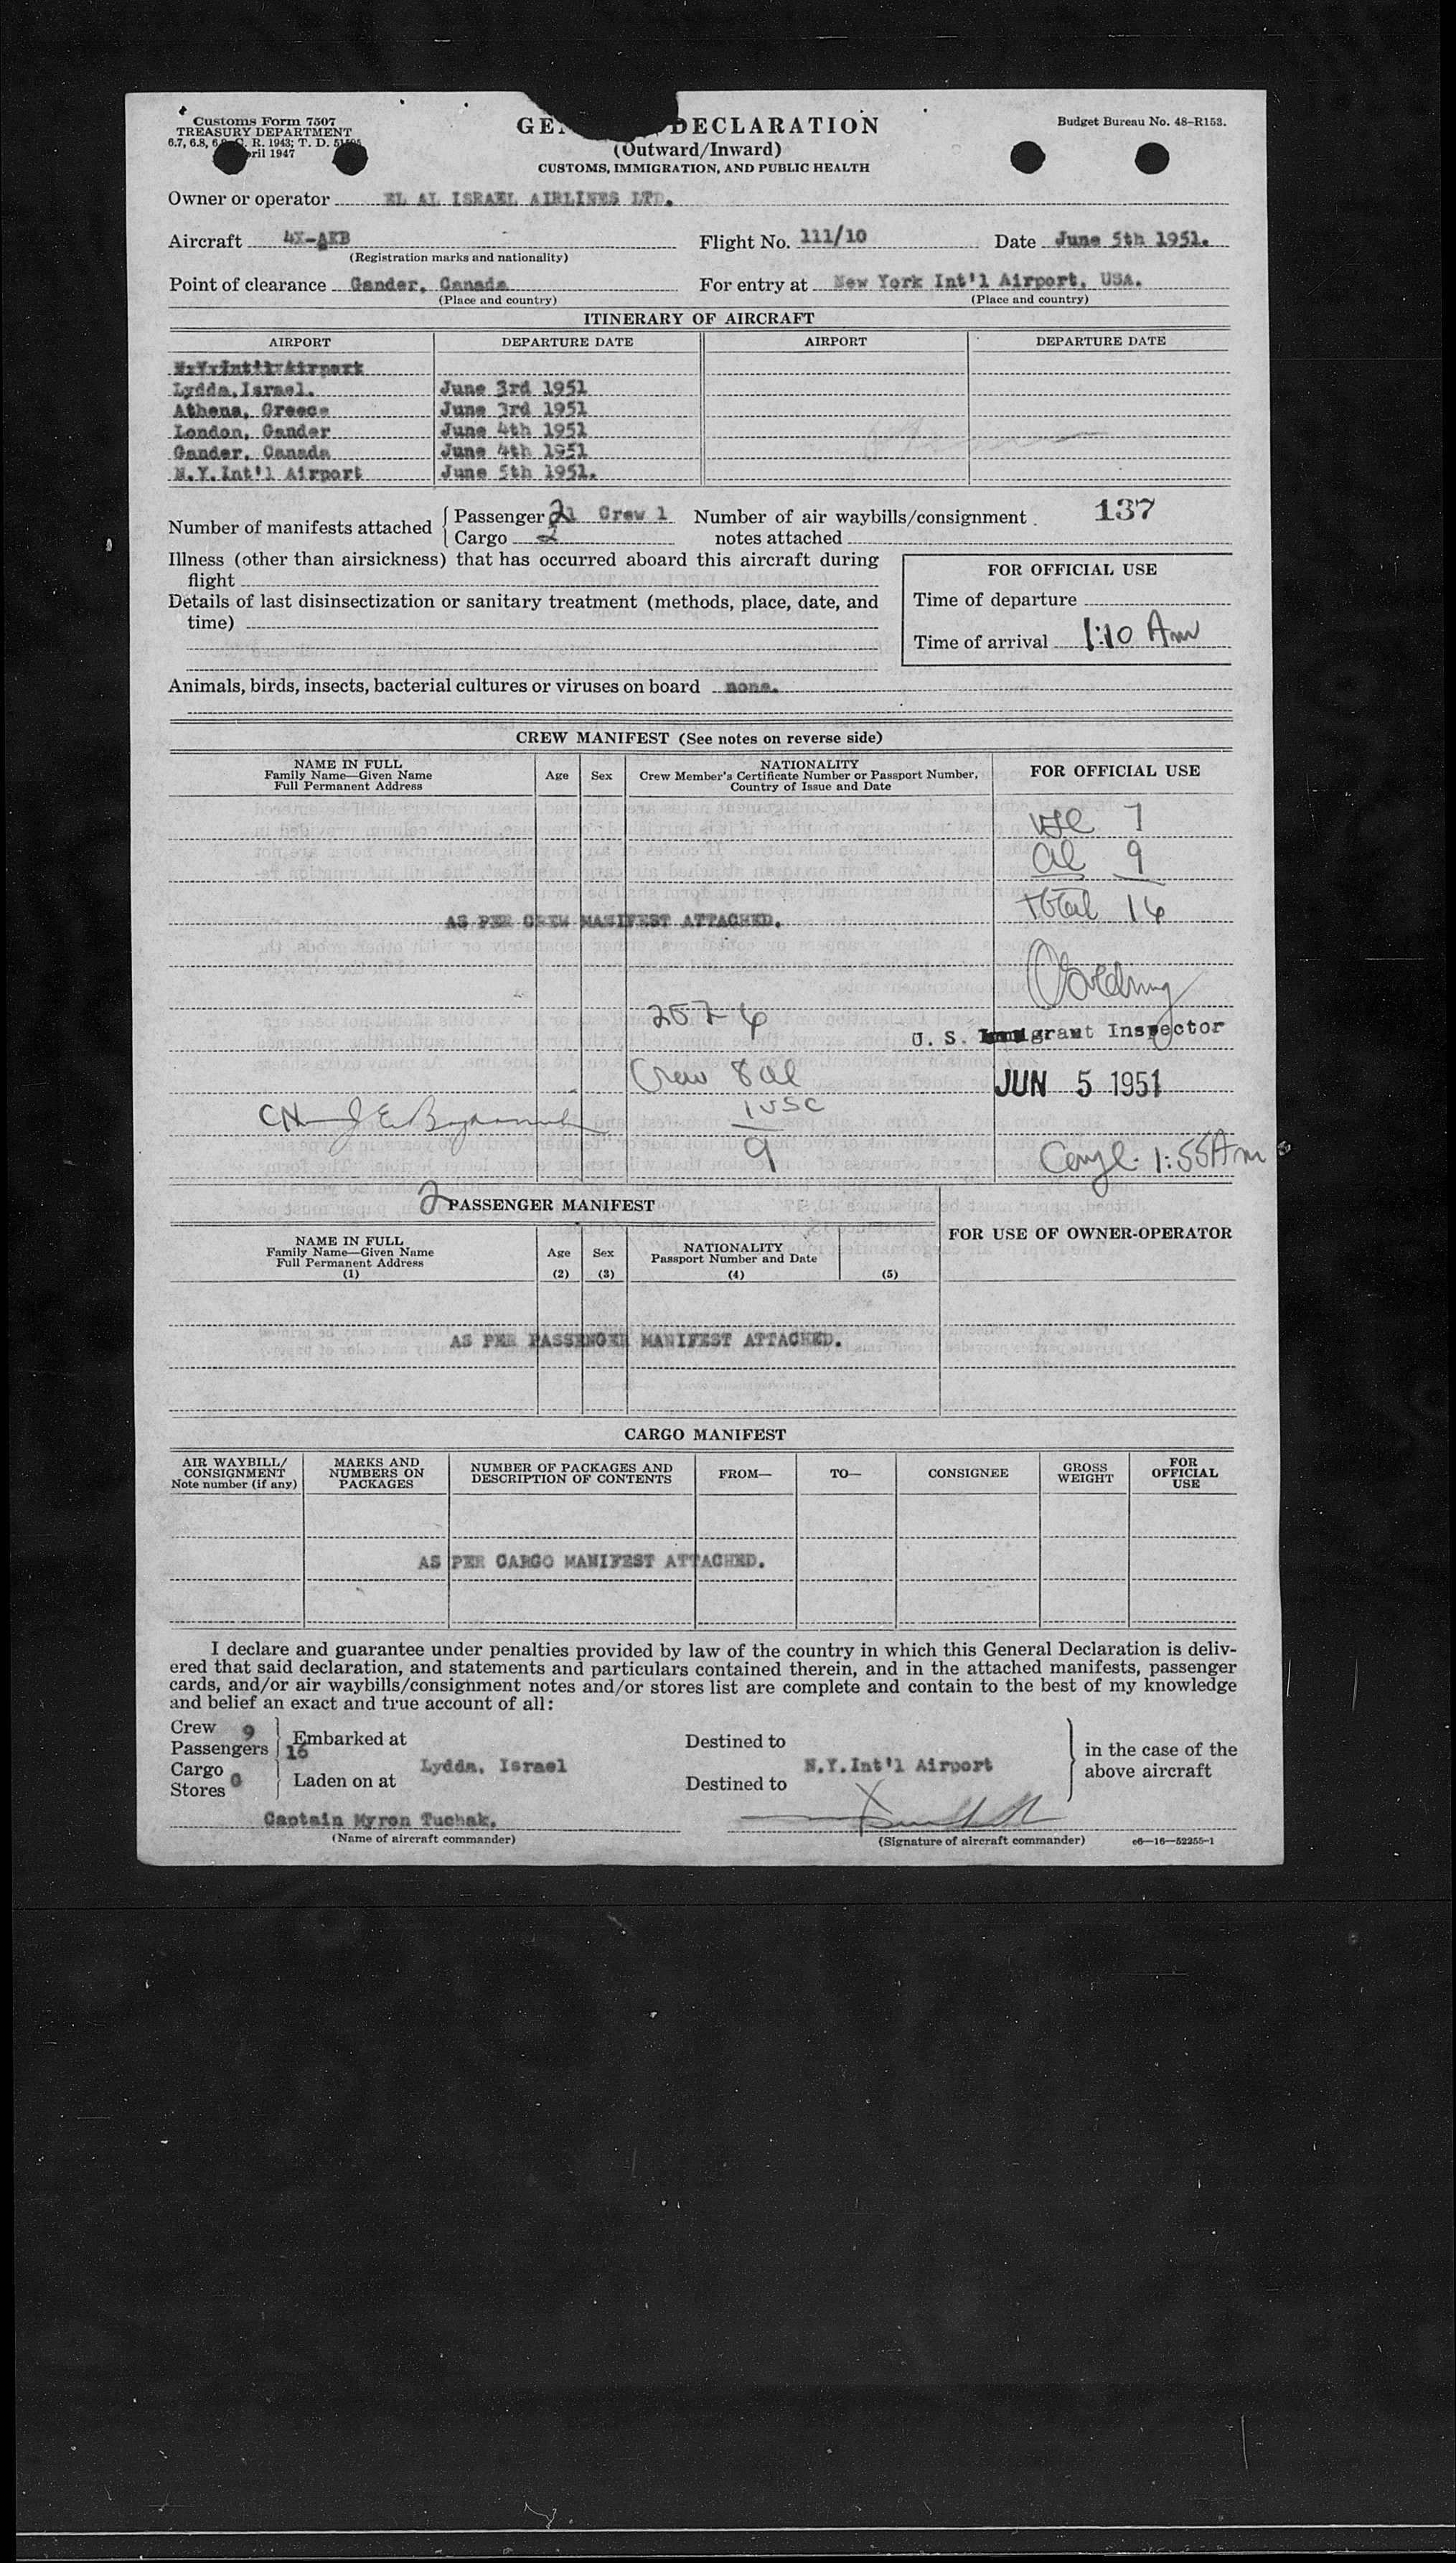 Customs Form 7507
TREASURY DEPARTMENT
6.7, 6.8, C. R. 1943; T. D.
1947
Budget Bureau No. 48-R153.
DECLARATION
(Outward/Inward)
CUSTOMS, IMMIGRATION, AND PUBLIC HEALTH
Owner or operator EL AL ISRAEL AIRLINES LTD.
Aircraft 4X-AKB Flight No. 111/10 Date June 5th 1951.
(Registration marks and nationality)
Point of clearance Gander, Canada For entry at New York Int'l Airport, USA.
(Place and country) (Place and country)
ITINERARY OF AIRCRAFT
AIRPORT DEPARTURE DATE AIRPORT DEPARTURE DATE
Lydda, Israel. June 3rd 1951
Athens, Greece June 3rd 1951
London, Gander June 4th 1951
Gander, Canada June 4th 1951
N.Y.Int'l Airport June 5th 1951.
Number of manifests attached Passenger 2 Crew 1 Number of air waybills/consignment 137
Cargo 2 notes attached
Illness (other than airsickness) that has occurred aboard this aircraft during
flight
Details of last disinsectization or sanitary treatment (methods, place, date, and
time)
FOR OFFICIAL USE
Time of departure
Time of arrival 1:10 Am
Animals, birds, insects, bacterial cultures or viruses on board none.
CREW MANIFEST (See notes on reverse side)
NAME IN FULL
Family Name—Given Name
Full Permanent Address
Age Sex
NATIONALITY
Crew Member's Certificate Number or Passport Number,
Country of Issue and Date
FOR OFFICIAL USE
USC 7
al 9
total 16
AS PER CREW MANIFEST ATTACHED.
U. S. Immigrant Inspector
Crew 8 al
JUN 5 1951
1 USC
9
1:55 Am
2 PASSENGER MANIFEST
FOR USE OF OWNER-OPERATOR
NAME IN FULL
Family Name—Given Name
Full Permanent Address
(1)
Age
(2)
Sex
(3)
NATIONALITY
Passport Number and Date
(4)
(5)
AS PER PASSENGER MANIFEST ATTACHED.
CARGO MANIFEST
AIR WAYBILL/
CONSIGNMENT
Note number (if any)
MARKS AND
NUMBERS ON
PACKAGES
NUMBER OF PACKAGES AND
DESCRIPTION OF CONTENTS
FROM—
TO—
CONSIGNEE
GROSS
WEIGHT
FOR
OFFICIAL
USE
AS PER CARGO MANIFEST ATTACHED.
I declare and guarantee under penalties provided by law of the country in which this General Declaration is deliv-
ered that said declaration, and statements and particulars contained therein, and in the attached manifests, passenger
cards, and/or air waybills/consignment notes and/or stores list are complete and contain to the best of my knowledge
and belief an exact and true account of all:
Crew 9
Passengers 16
Cargo
Stores 0
Embarked at
Laden on at
Lydda, Israel
Destined to
Destined to
N.Y.Int'l Airport
in the case of the
above aircraft
Captain Myron Tuchak.
(Name of aircraft commander) (Signature of aircraft commander) c6—16—52255-1